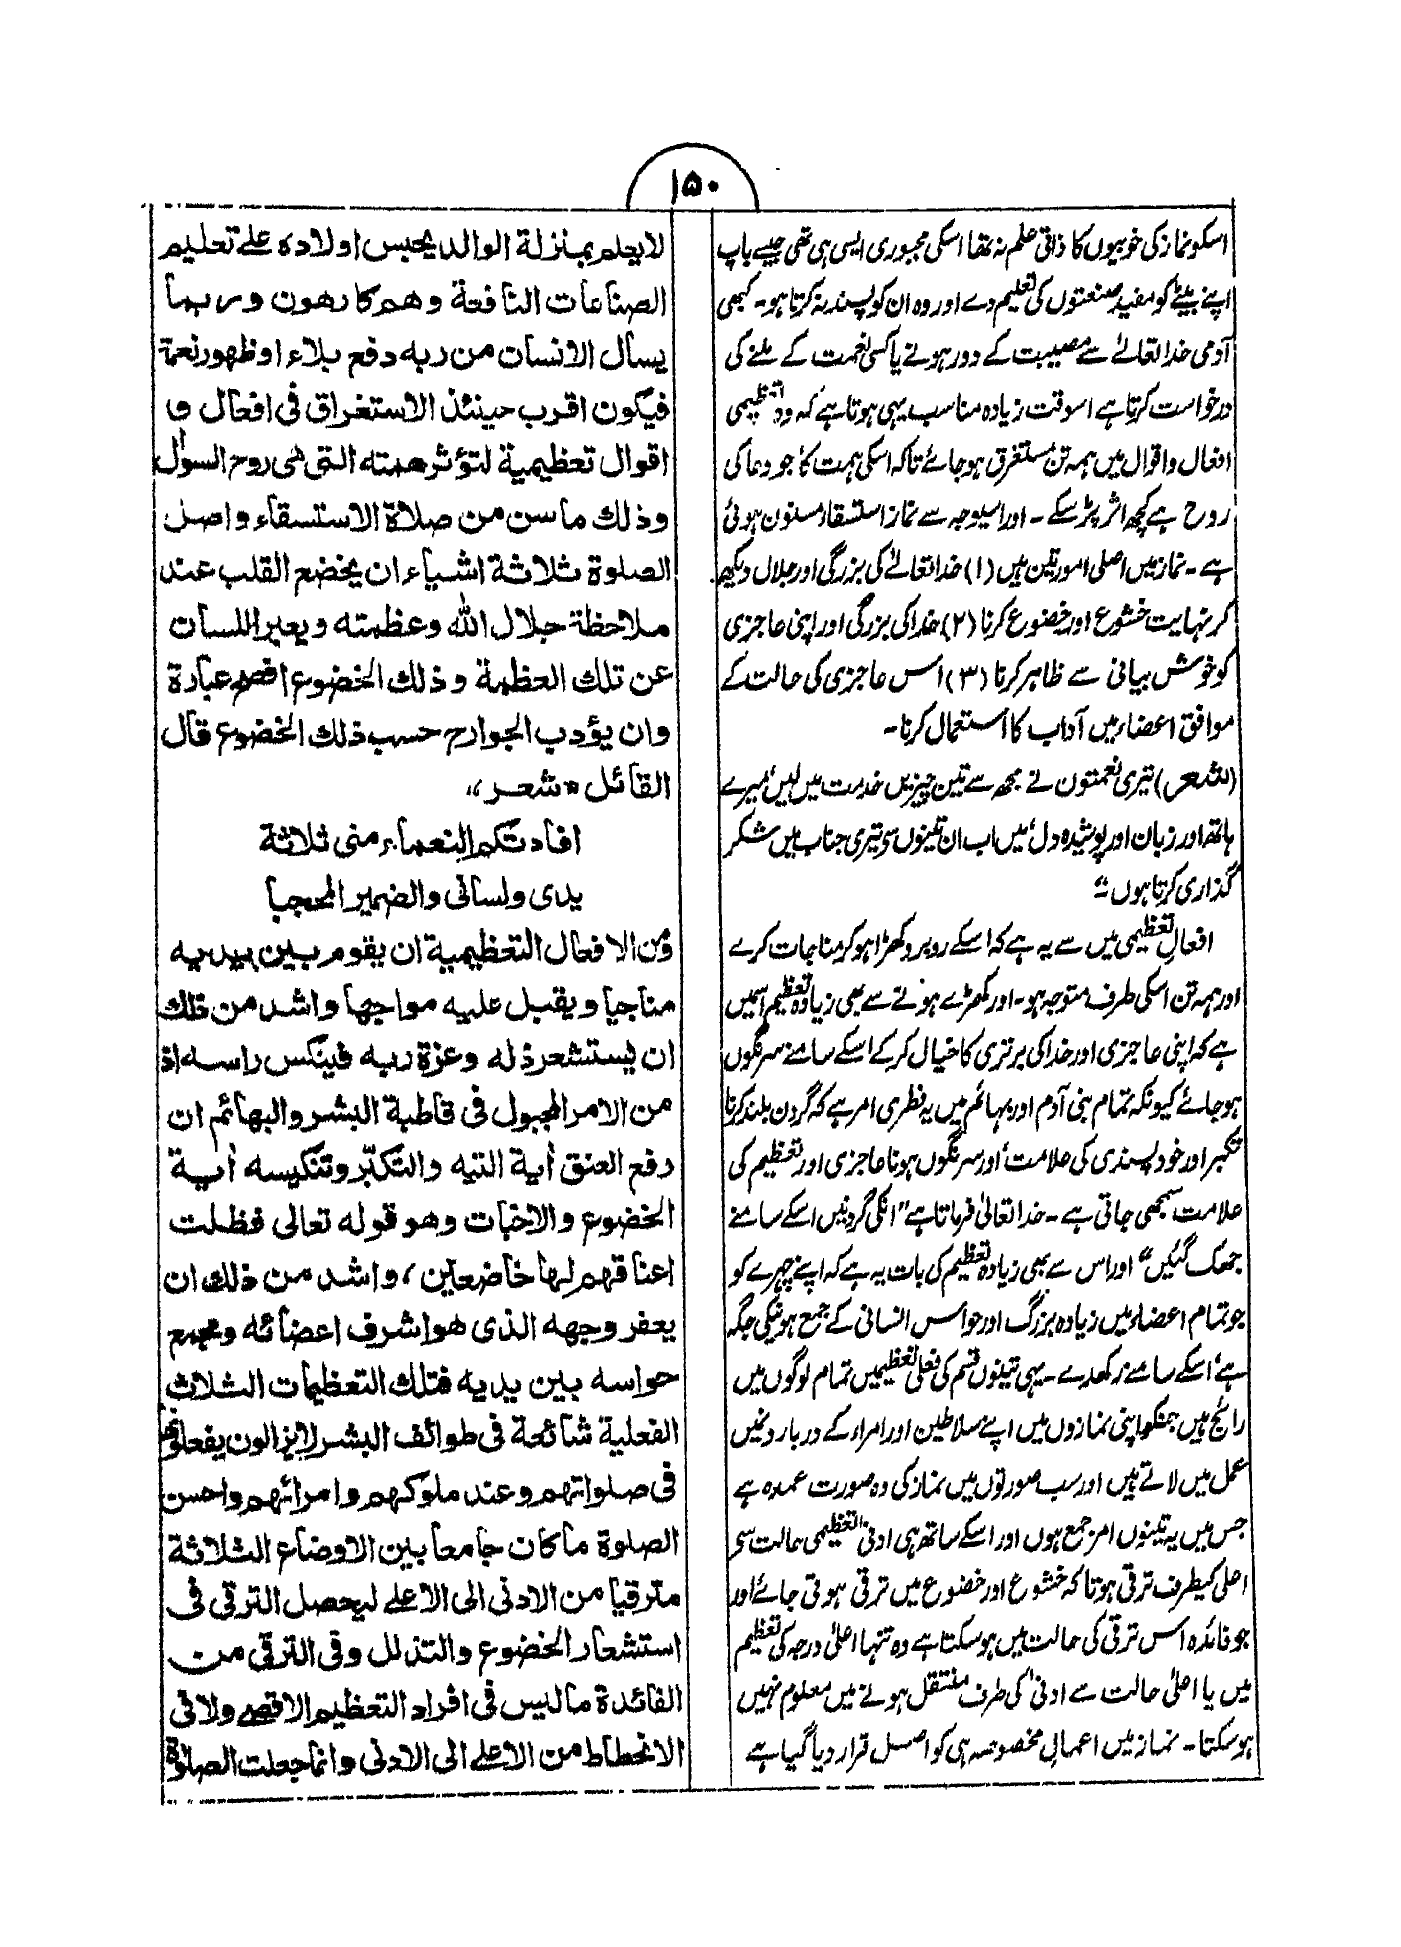 ۱۵۰
اسکو نماز کی خوبیوں کا ذاتی علم نہ تھا اسکی مجبوری ایسی ہی تھی جیسے باپ
اپنے بیٹے کو مفید صنعتوں کی تعلیم دے اور وہ ان کو پسند نہ کرتا ہو۔ کبھی
آدمی خدا تعالےٰ سے مصیبت کے دور ہونے یا کسی نعمت کے ملنے کی
درخواست کرتا ہے اسوقت زیادہ مناسب یہی ہوتا ہے کہ وہ تعظیمی
افعال و اقوال میں ہمہ تن مستغرق ہو جائے تاکہ اسکی ہمت کا جو دعا کی
روح ہے کچھ اثر پڑ سکے۔ اور اسیوجہ سے نماز استسقاء مسنون ہوئی
ہے۔ نماز میں اصلی امور تین ہیں (۱) خدا تعالےٰ کی بزرگی اور جلال دیکھ
کر نہایت خشوع اور خضوع کرنا (۲) خدا کی بزرگی اور اپنی عاجزی
کو خوش بیانی سے ظاہر کرنا (۳) اس عاجزی کی حالت کے
موافق اعضاء میں آداب کا استعمال کرنا۔
(شعر) تیری نعمتوں نے مجھ سے تین چیزیں خدمت میں لیں میرے
ہاتھ اور زبان اور پوشیدہ دل میں اب ان تینوں سے تیری جناب میں شکر
گذاری کرتا ہوں“
افعال تعظیمی میں سے یہ ہے کہ اسکے روبرو کھڑا ہو کر مناجات کرے
اور ہمہ تن اسکی طرف متوجہ ہو۔ اور کھڑے ہونے سے بھی زیادہ تعظیم اسمیں
ہے کہ اپنی عاجزی اور خدا کی برتری کا خیال کر کے اسکے سامنے سرنگوں
ہو جائے کیونکہ تمام بنی آدم اور بہائم میں یہ فطری امر ہے کہ گردن بلند کرنا
تکبر اور خود پسندی کی علامت اور سرنگوں ہونا عاجزی اور تعظیم کی
علامت سمجھی جاتی ہے۔ خدا تعالیٰ فرماتا ہے "انکی گردنیں اسکے سامنے
جھک گئیں" اور اس سے بھی زیادہ تعظیم کی بات یہ ہے کہ اپنے چہرے کو
جو تمام اعضاء میں زیادہ بزرگ اور حواس انسانی کے جمع ہونیکی جگہ
ہے اسکے سامنے رکھدے۔ یہی تینوں قسم کی فعلی تعظیمیں تمام لوگوں میں
رائج ہیں جنکو اپنی نمازوں میں اپنے سلاطین اور امراء کے دربار و نمیں
عمل میں لاتے ہیں اور سب صورتوں میں نماز کی وہ صورت عمدہ ہے
جس میں یہ تینوں امر جمع ہوں اور اسکے ساتھ ہی ادنیٰ تعظیمی حالت سے
اعلی کیطرف ترقی ہو تاکہ خشوع اور خضوع میں ترقی ہوتی جائے اور
جو فائدہ اس ترقی کی حالت میں ہو سکتا ہے وہ تنہا اعلیٰ درجہ کی تعظیم
میں یا اعلیٰ حالت سے ادنیٰ کی طرف منتقل ہونے میں معلوم نہیں
ہو سکتا۔ نماز میں اعمال مخصوصہ ہی کو اصل قرار دیا گیا ہے
لا يعلم بمنزلة الوالد يحبس اولاده على تعليم
الصناعات النافعة وهم كارهون وربما
يسأل الانسان من ربه دفع بلاء او ظهور نعمة
فيكون اقرب حينئذ الاستغراق فى افعال و
اقوال تعظيمية لتؤثر همته التى هى روح السوال
وذلك ما سن من صلاة الاستسقاء واصل
الصلوة ثلاثة اشياء ان يخضع القلب عند
ملاحظة جلال الله وعظمته ويعبر اللسان
عن تلك العظمة وذلك الخضوع افصح عبارة
وان يؤدب الجوارح حسب ذلك الخضوع قال
القائل "شعر"
افادتكم النعماء منى ثلاثة
يدى ولسانى والضمير المحجبا
ومن الافعال التعظيمية ان يقوم بين يديه
مناجيا ويقبل عليه مواجها واشد من ذلك
ان يستشعر ذله وعزة ربه فينكس راسه اذ
من الامر المجبول فى قاطبة البشر والبهائم ان
رفع العنق أية التيه والتكبّر وتنكيسه أية
الخضوع والاخبات وهو قوله تعالى فظلت
اعناقهم لها خاضعين، واشد من ذلك ان
يعفر وجهه الذى هو اشرف اعضائه ومجمع
حواسه بين يديه فتلك التعظيمات الثلاث
الفعلية شائعة فى طوائف البشر لايزالون يفعلونها
فى صلواتهم وعند ملوكهم وامرائهم واحسن
الصلوة ما كان جامعا بين الاوضاع الثلاثة
مترقيا من الادنى الى الاعلى ليحصل الترقى فى
استشعار الخضوع والتذلل وفى الترقى من
الفائدة ما ليس فى افراد التعظيم الاقصى ولا فى
الانحطاط من الاعلى الى الادنى وانما جعلت الصلوة